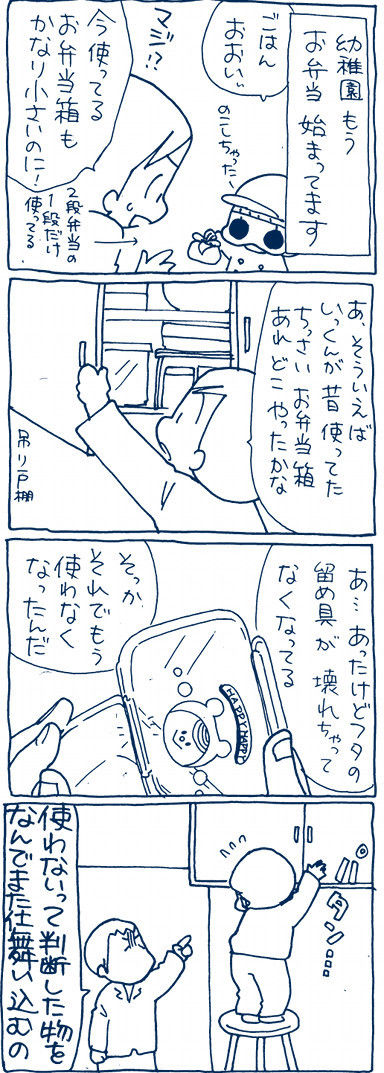 幼稚園もう
お弁当始まってます
ごはん
おおい〜
のこしちゃった
マジ!?
今使ってる
お弁当箱も
かなり小さいのに!
2段弁当の
1段だけ
使ってる
あ、そういえば
いっくんが昔使ってた
ちっさいお弁当箱
あれどこやったかな
吊り戸棚
あ…あったけどフタの
留め具が壊れちゃって
なくなってる
HAPPY HAPPY
そっか
それでもう
使わなく
なったんだ
タン…
使わないって判断した物を
なんでまた仕舞い込むの